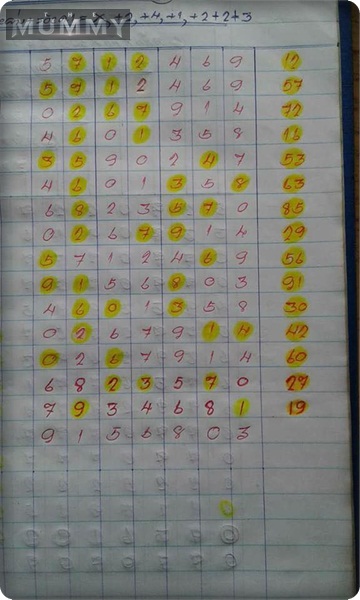 MUMMY
x, +2, +4, +1, +2+2+3
5 7 1 2 4 6 9 12
5 7 1 2 4 6 9 57
0 2 6 7 9 1 4 72
4 6 0 1 3 5 8 16
7 5 9 0 2 4 7 53
4 6 0 1 3 5 8 63
6 8 2 3 5 7 0 85
0 2 6 7 9 1 4 29
5 7 1 2 4 6 9 56
9 1 5 6 8 0 3 91
4 6 0 1 3 5 8 30
0 2 6 7 9 1 4 42
0 2 6 7 9 1 4 60
6 8 2 3 5 7 0 27
7 9 3 4 6 8 1 19
9 1 5 6 8 0 3